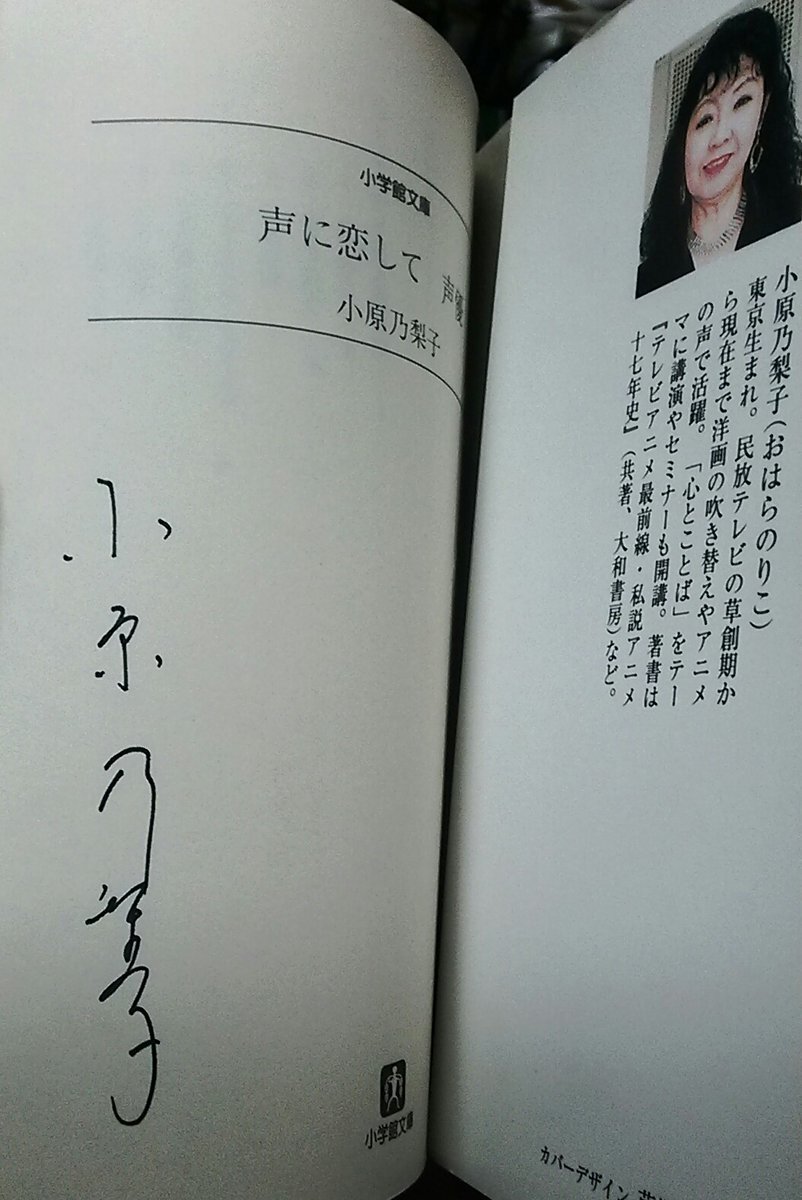 小学館文庫
声に恋して 声優
小原乃梨子
小原乃梨子
小学館文庫
小原乃梨子(おはらのりこ)
東京生まれ。民放テレビの草創期か
ら現在まで洋画の吹き替えやアニメ
の声で活躍。「心とことば」をテー
マに講演やセミナーも開講。著書は
『テレビアニメ最前線・私説アニメ
十七年史』(共著、大和書房)など。
カバーデザイン